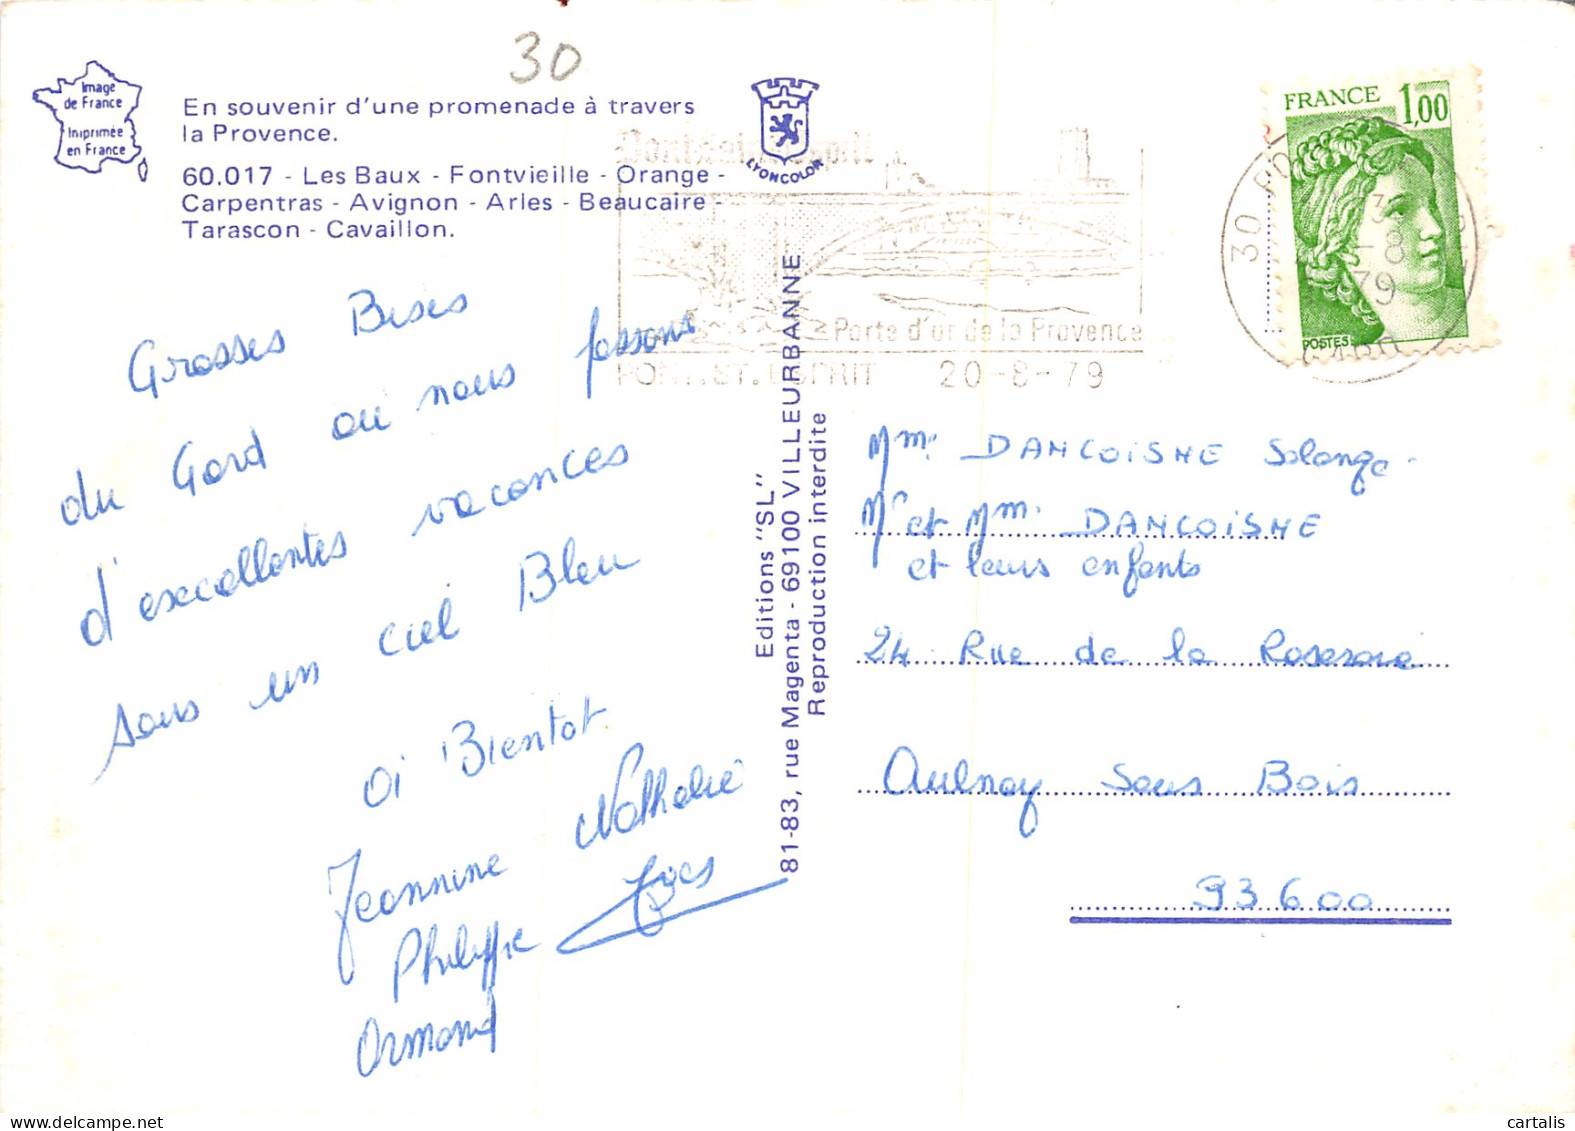 30
Image
de France
Imprimée
en France
En souvenir d'une promenade à travers
la Provence.
60.017 - Les Baux - Fontvieille - Orange -
Carpentras - Avignon - Arles - Beaucaire -
Tarascon - Cavaillon.
LYONCOLOR
Pont Saint Esprit
Porte d'or de la Provence
PONT. ST. ESPRIT 20-8-79
FRANCE 1,00
POSTES
30
8
79
Grosses Bises
du Gard ou nous passons
d'excellentes vacances
sous un ciel Bleu
a Bientot.
Jeannine Nathalie
Philippe Yves
Armand
Editions "SL"
81-83, rue Magenta - 69100 VILLEURBANNE
Reproduction interdite
Mme DANCOISNE Solange
Mr et Mme DANCOISNE
et leurs enfants
24 Rue de la Roseraie
Aulnay Sous Bois
93600
cartalis